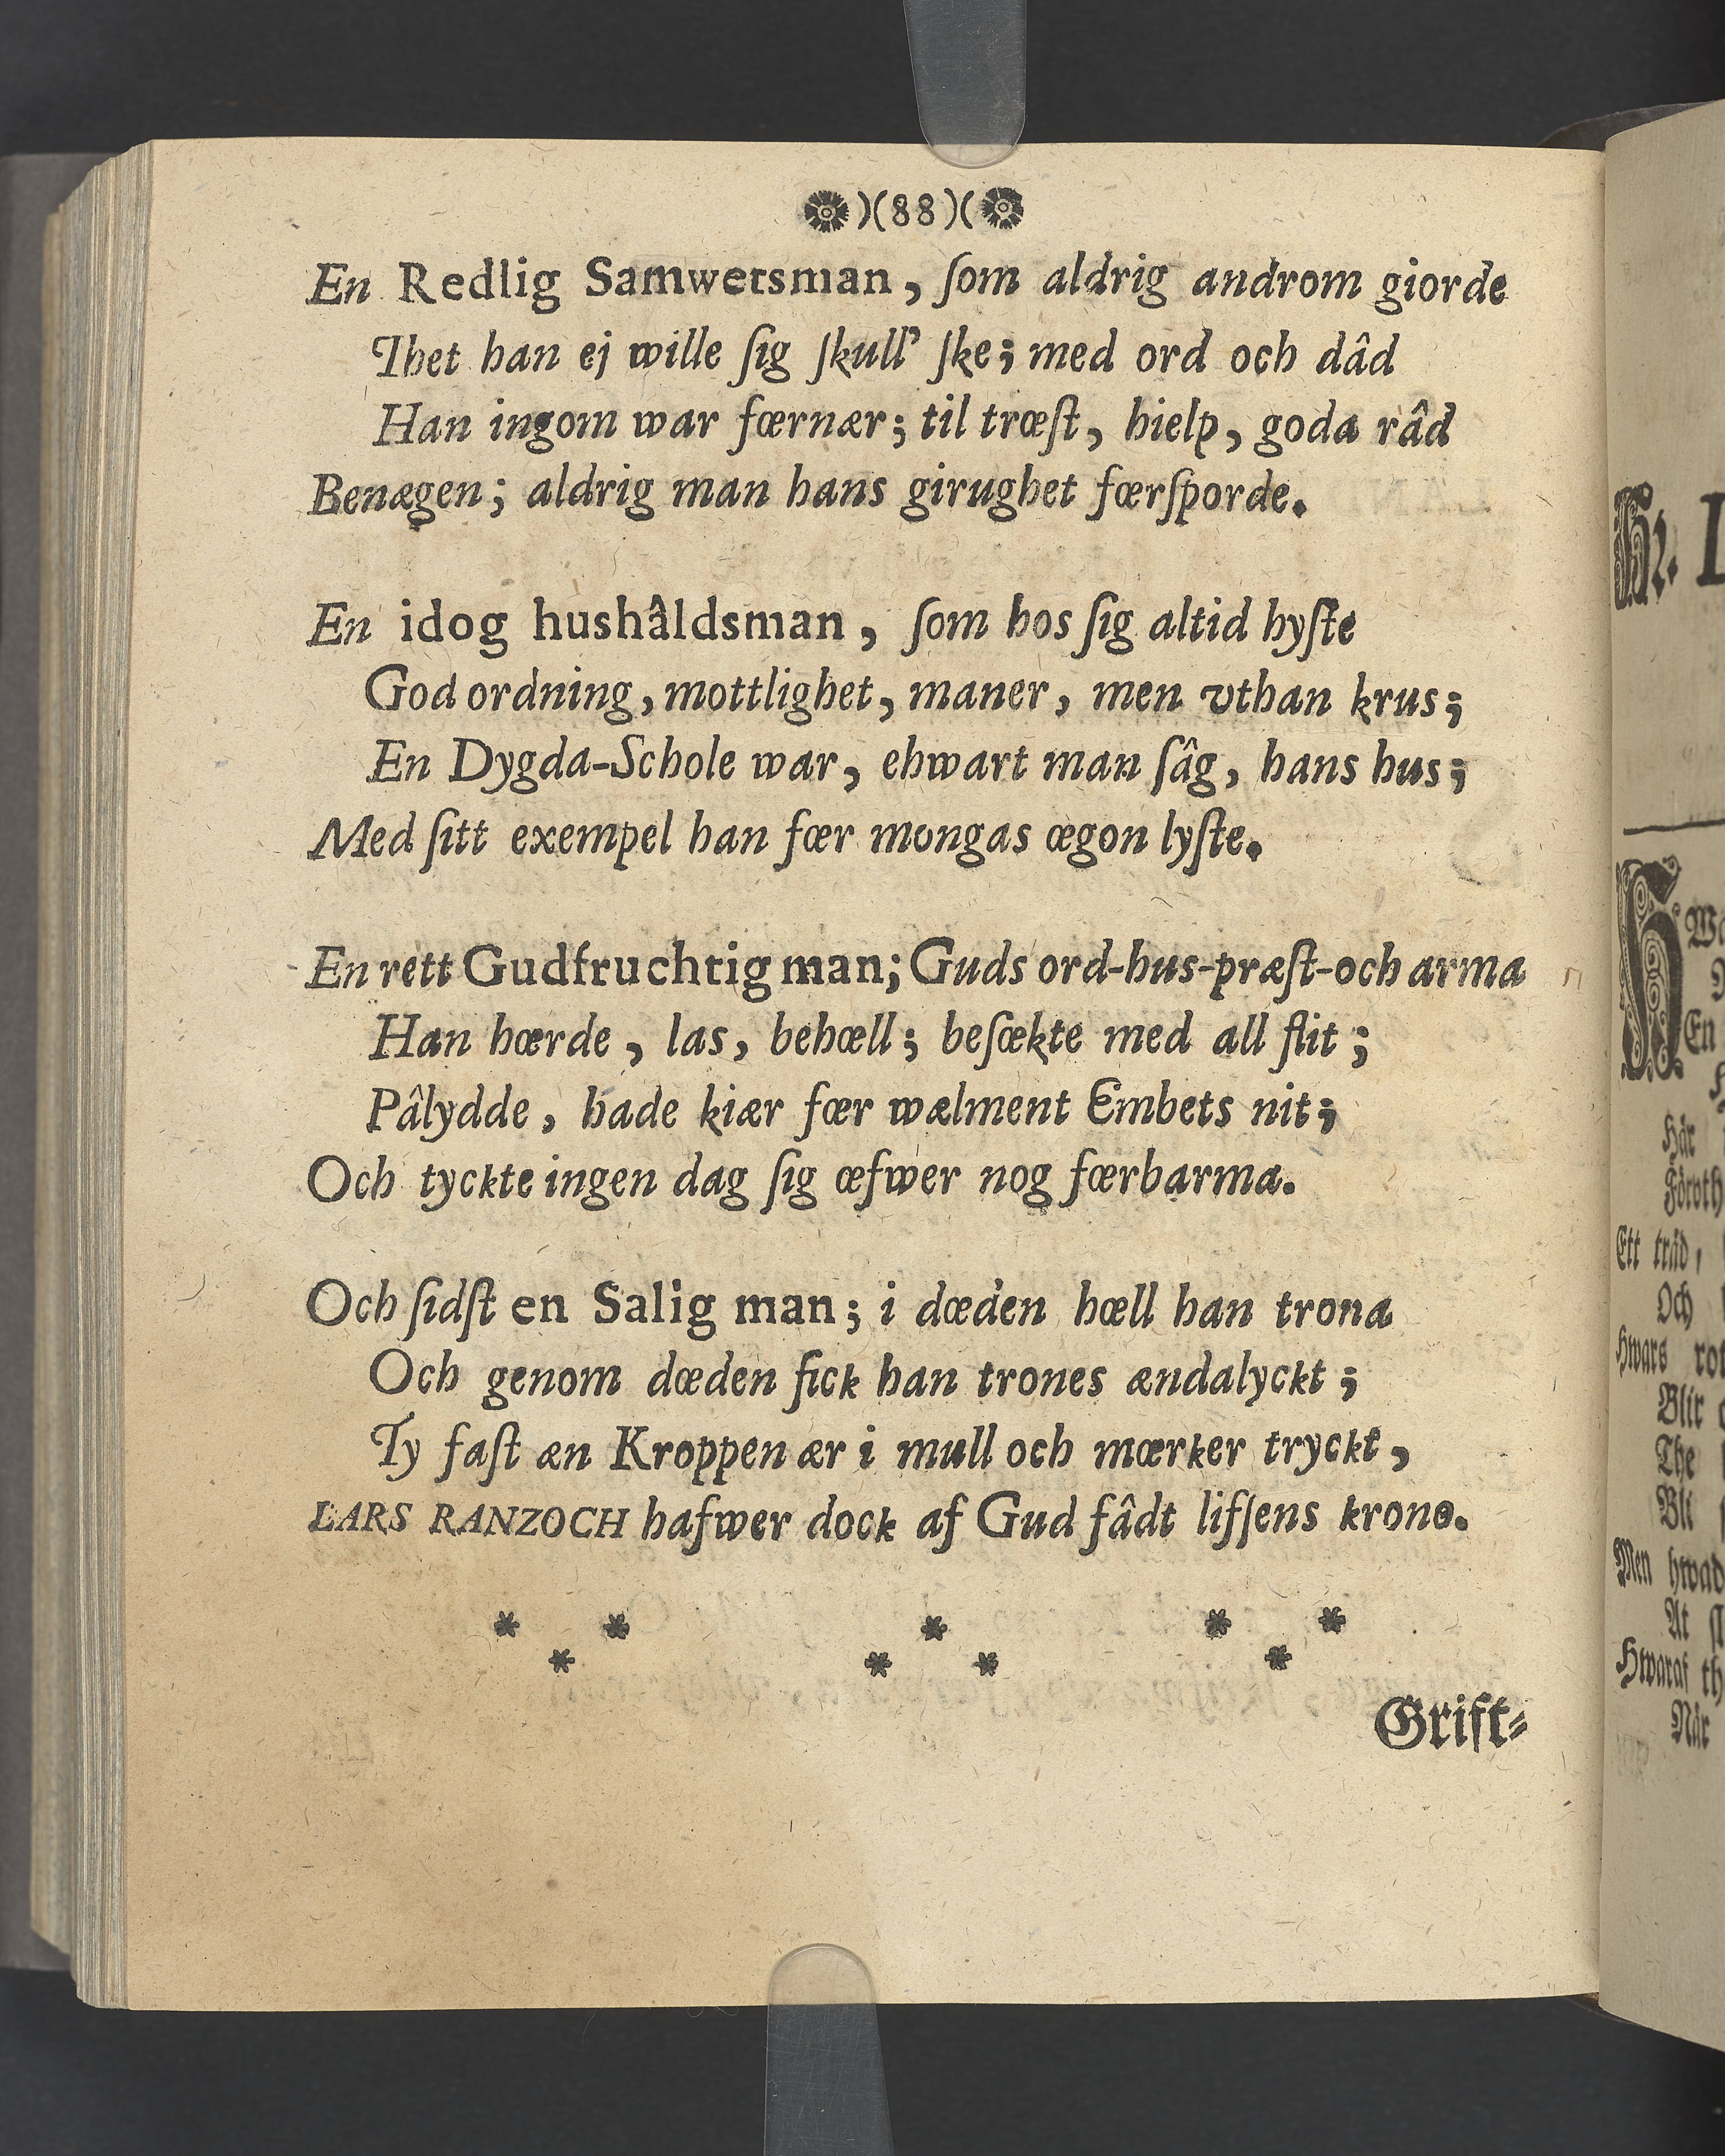 )(88)(
En Redlig Samwetsman, ſom aldrig androm giorde
Thet han ej wille ſig ſkull' ſke; med ord och dâd
Han ingom war fœrnær; til trœſt, hielp, goda râd
Benægen; aldrig man hans girughet fœrſporde.
En idog hushâldsman, ſom hos ſig altid hyſte
God ordning, mottlighet, maner, men vthan krus;
En Dygda-Schole war, ehwart man ſâg, hans hus;
Med ſitt exempel han fœr mongas œgon lyſte.
En rett Gudfruchtig man; Guds ord-hus-præſt-och arma
Han hœrde, las, behœll; beſœkte med all flit;
Pâlydde, hade kiær fœr wælment Embets nit;
Och tyckte ingen dag ſig œfwer nog fœrbarma.
Och ſidſt en Salig man; i dœden hœll han trona
Och genom dœden fick han trones ændalyckt;
Ty faſt æn Kroppen ær i mull och mœrker tryckt,
LARS RANZOCH hafwer dock af Gud fâdt lifſens krono.
* * * * * *
* * *
Grift-
Hr. L
Wa
En
Här
Föruth
Ett träd,
Och
Hwars rot
Blir
The
Bli
Men hwad
At
Hwaraf th
När